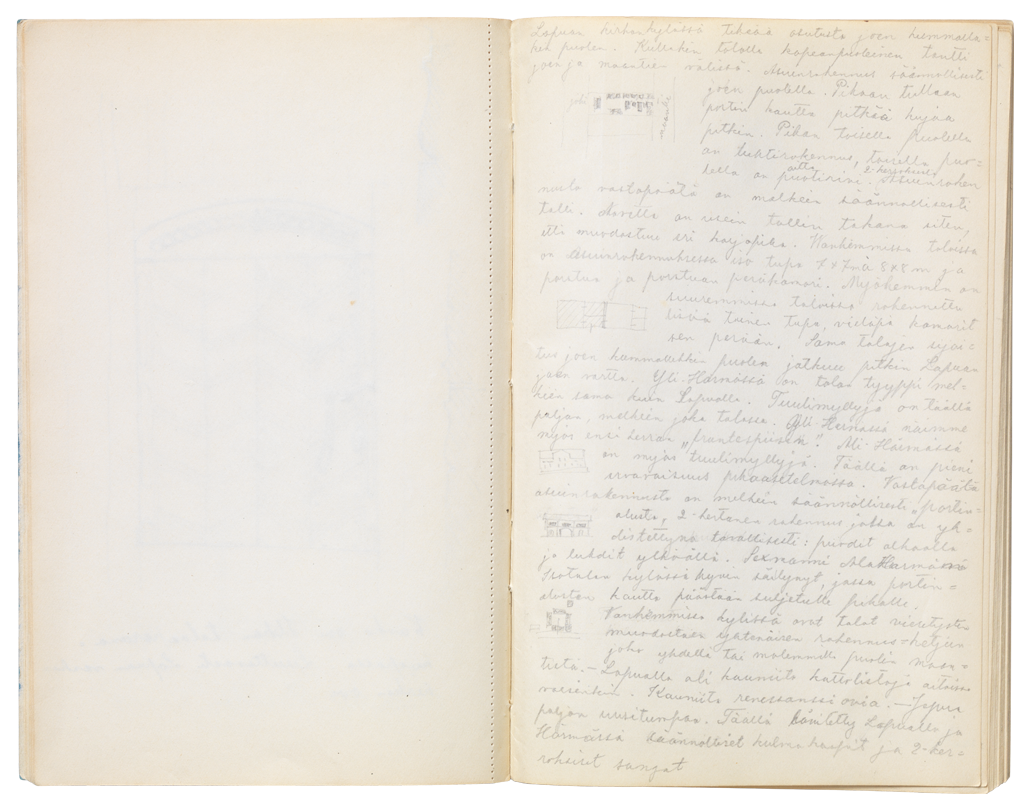 Lapuan kirkonkylässä tehssä asutusta joen kummalla-
kin puolen. Kullakin talolla kapeanpuoleinen tontti
joen ja maantien välissä. Asuinrakennus säännöllisesti
joen puolella. Pihaan tullaan
joki
maantie
portin kautta pitkää kujaa
pitkin. Pihan toisella puolella
on luhtirakennus, toisella puo-
lella on puotirivi. Asuinraken
aitta
2-kerroksinen
nusta vastapäätä on melkein säännöllisesti
talli. Navetta on usein tallin takana siten,
että muodostuu eri karjapiha. Vanhemmissa taloissa
on asuinrakennuksessa iso tupa 7x7 à 8x8 m ja
porstua ja porstuan peräkamari. Myöhemmin on
suuremmissa taloissa rakennettu
lisiä toinen tupa, vieläpä kamarit
sen perään. Sama talojen sijoi-
tus joen kummallekkin puolen jatkuu pitkin Lapuan
joen vartta. Yli-Härmässä on talon tyyppi mel-
kein sama kuin Lapualla. Tuulimyllyjä on täällä
paljon, melkein joka talossa. Yli-Härmässä näimme
myös ensi kerran "frontespiisin". Ali-Härmässä
on myös tuulimyllyjä. Täällä on pieni
eroavaisuus pihaasetelmassa. Vastapäätä
asuinrakennusta on melkein säännöllisesti "portin-
alusta, 2-kertanen rakennus jossa on yh-
distettynä tavallisesti: puodit alhaalla
ja luhdit ylhäällä. Alahärmässä
Isotalon kylässä hyvin säilynyt, jossa portin-
alusten kautta päästään suljetulle pihalle.
Vanhemmissa kylissä ovat talot vieretysten
muodostaen yhtenäisen rakennus-ketjun
joko yhdellä tai molemmilla puolin maan-
tietä. – Lapualla oli kauniita kattolistoja aitoissa
varsinkin. Kauniita renessanssi ovia. –
paljon uusitumpaa. Täällä kömitetty Lapualla ja
Härmässä säännölliset kulmakaapit ja 2-ker-
rokiset sängyt